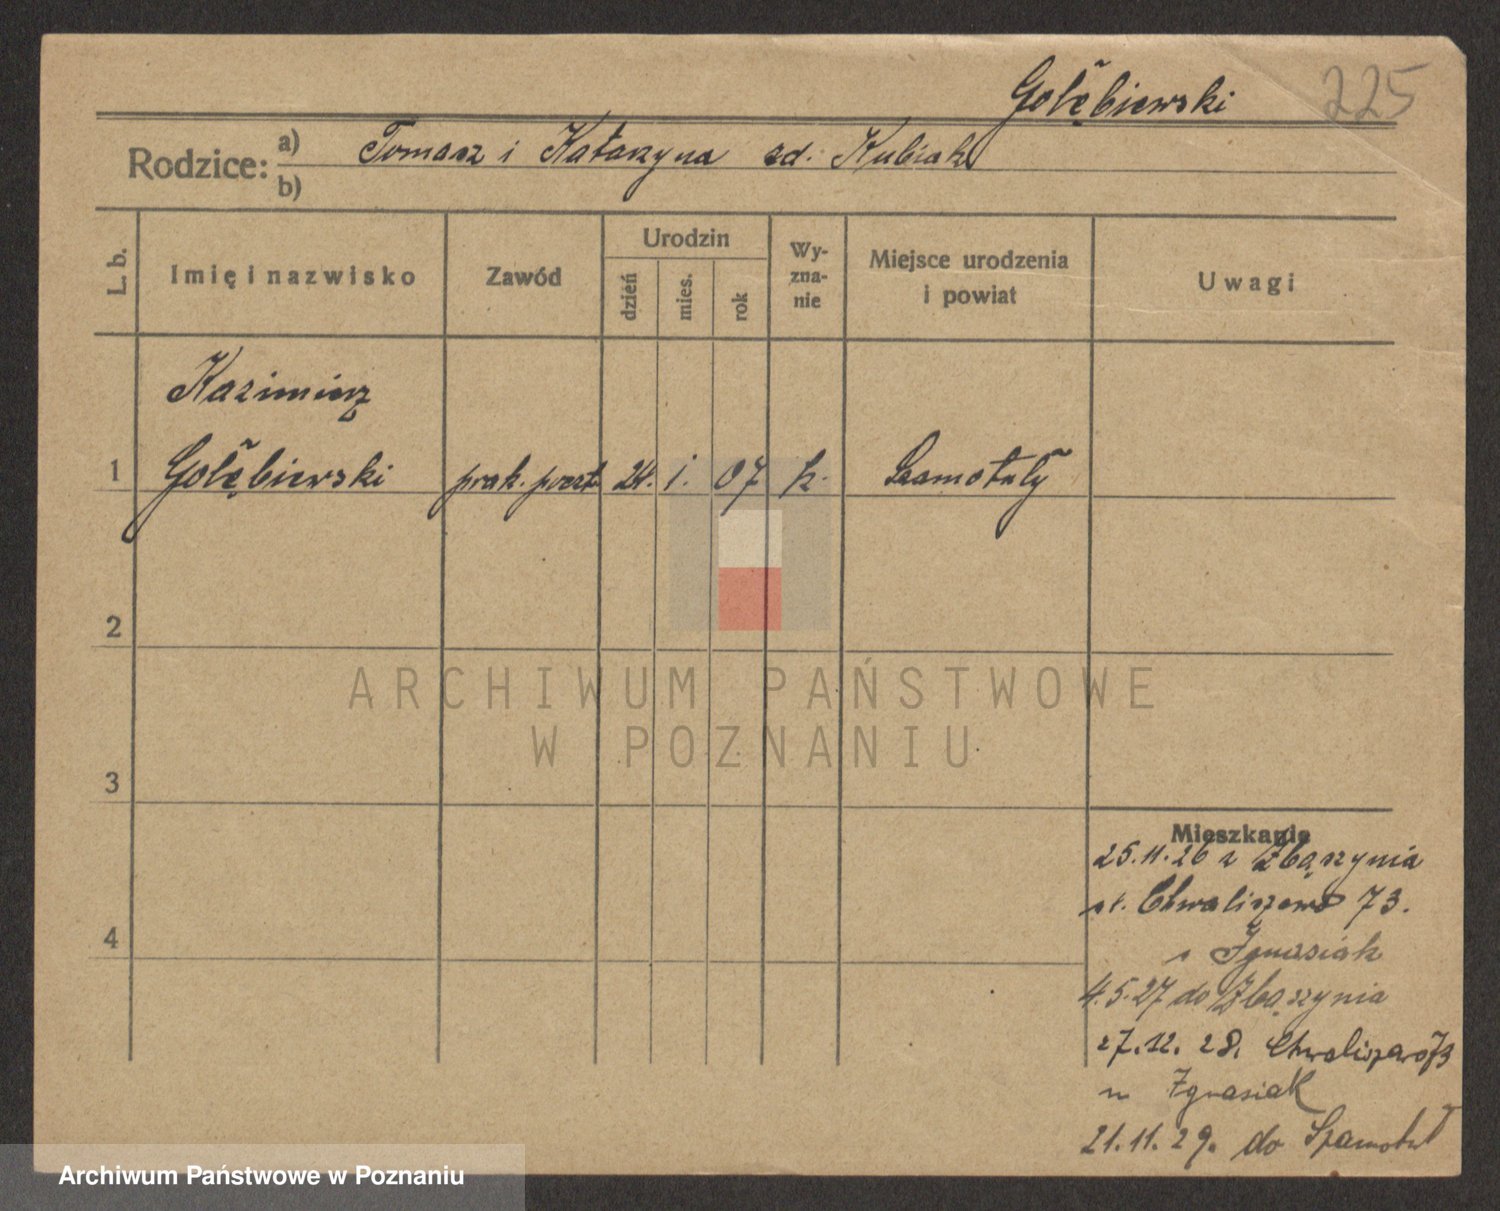 Gołębiewski 225
Rodzice: a) Tomasz i Katarzyna zd. Kubiak
b)
L. b. Imię i nazwisko Zawód Urodzin dzień mies. rok Wy-zna-nie Miejsce urodzenia i powiat Uwagi
Kazimierz
1 Gołębiewski prak. poczt. 24. 1. 07 k. Szamotuły
2
ARCHIWUM PAŃSTWOWE
W POZNANIU
3
Mieszkanie
25.11.26 z Zbąszynia
Chwaliszewo 73.
4
Ignasiak
4.5.27 do Zbąszynia
27.12.28. Chwaliszewo 73
Ignasiak
21.11.29. do Szamotuł
Archiwum Państwowe w Poznaniu